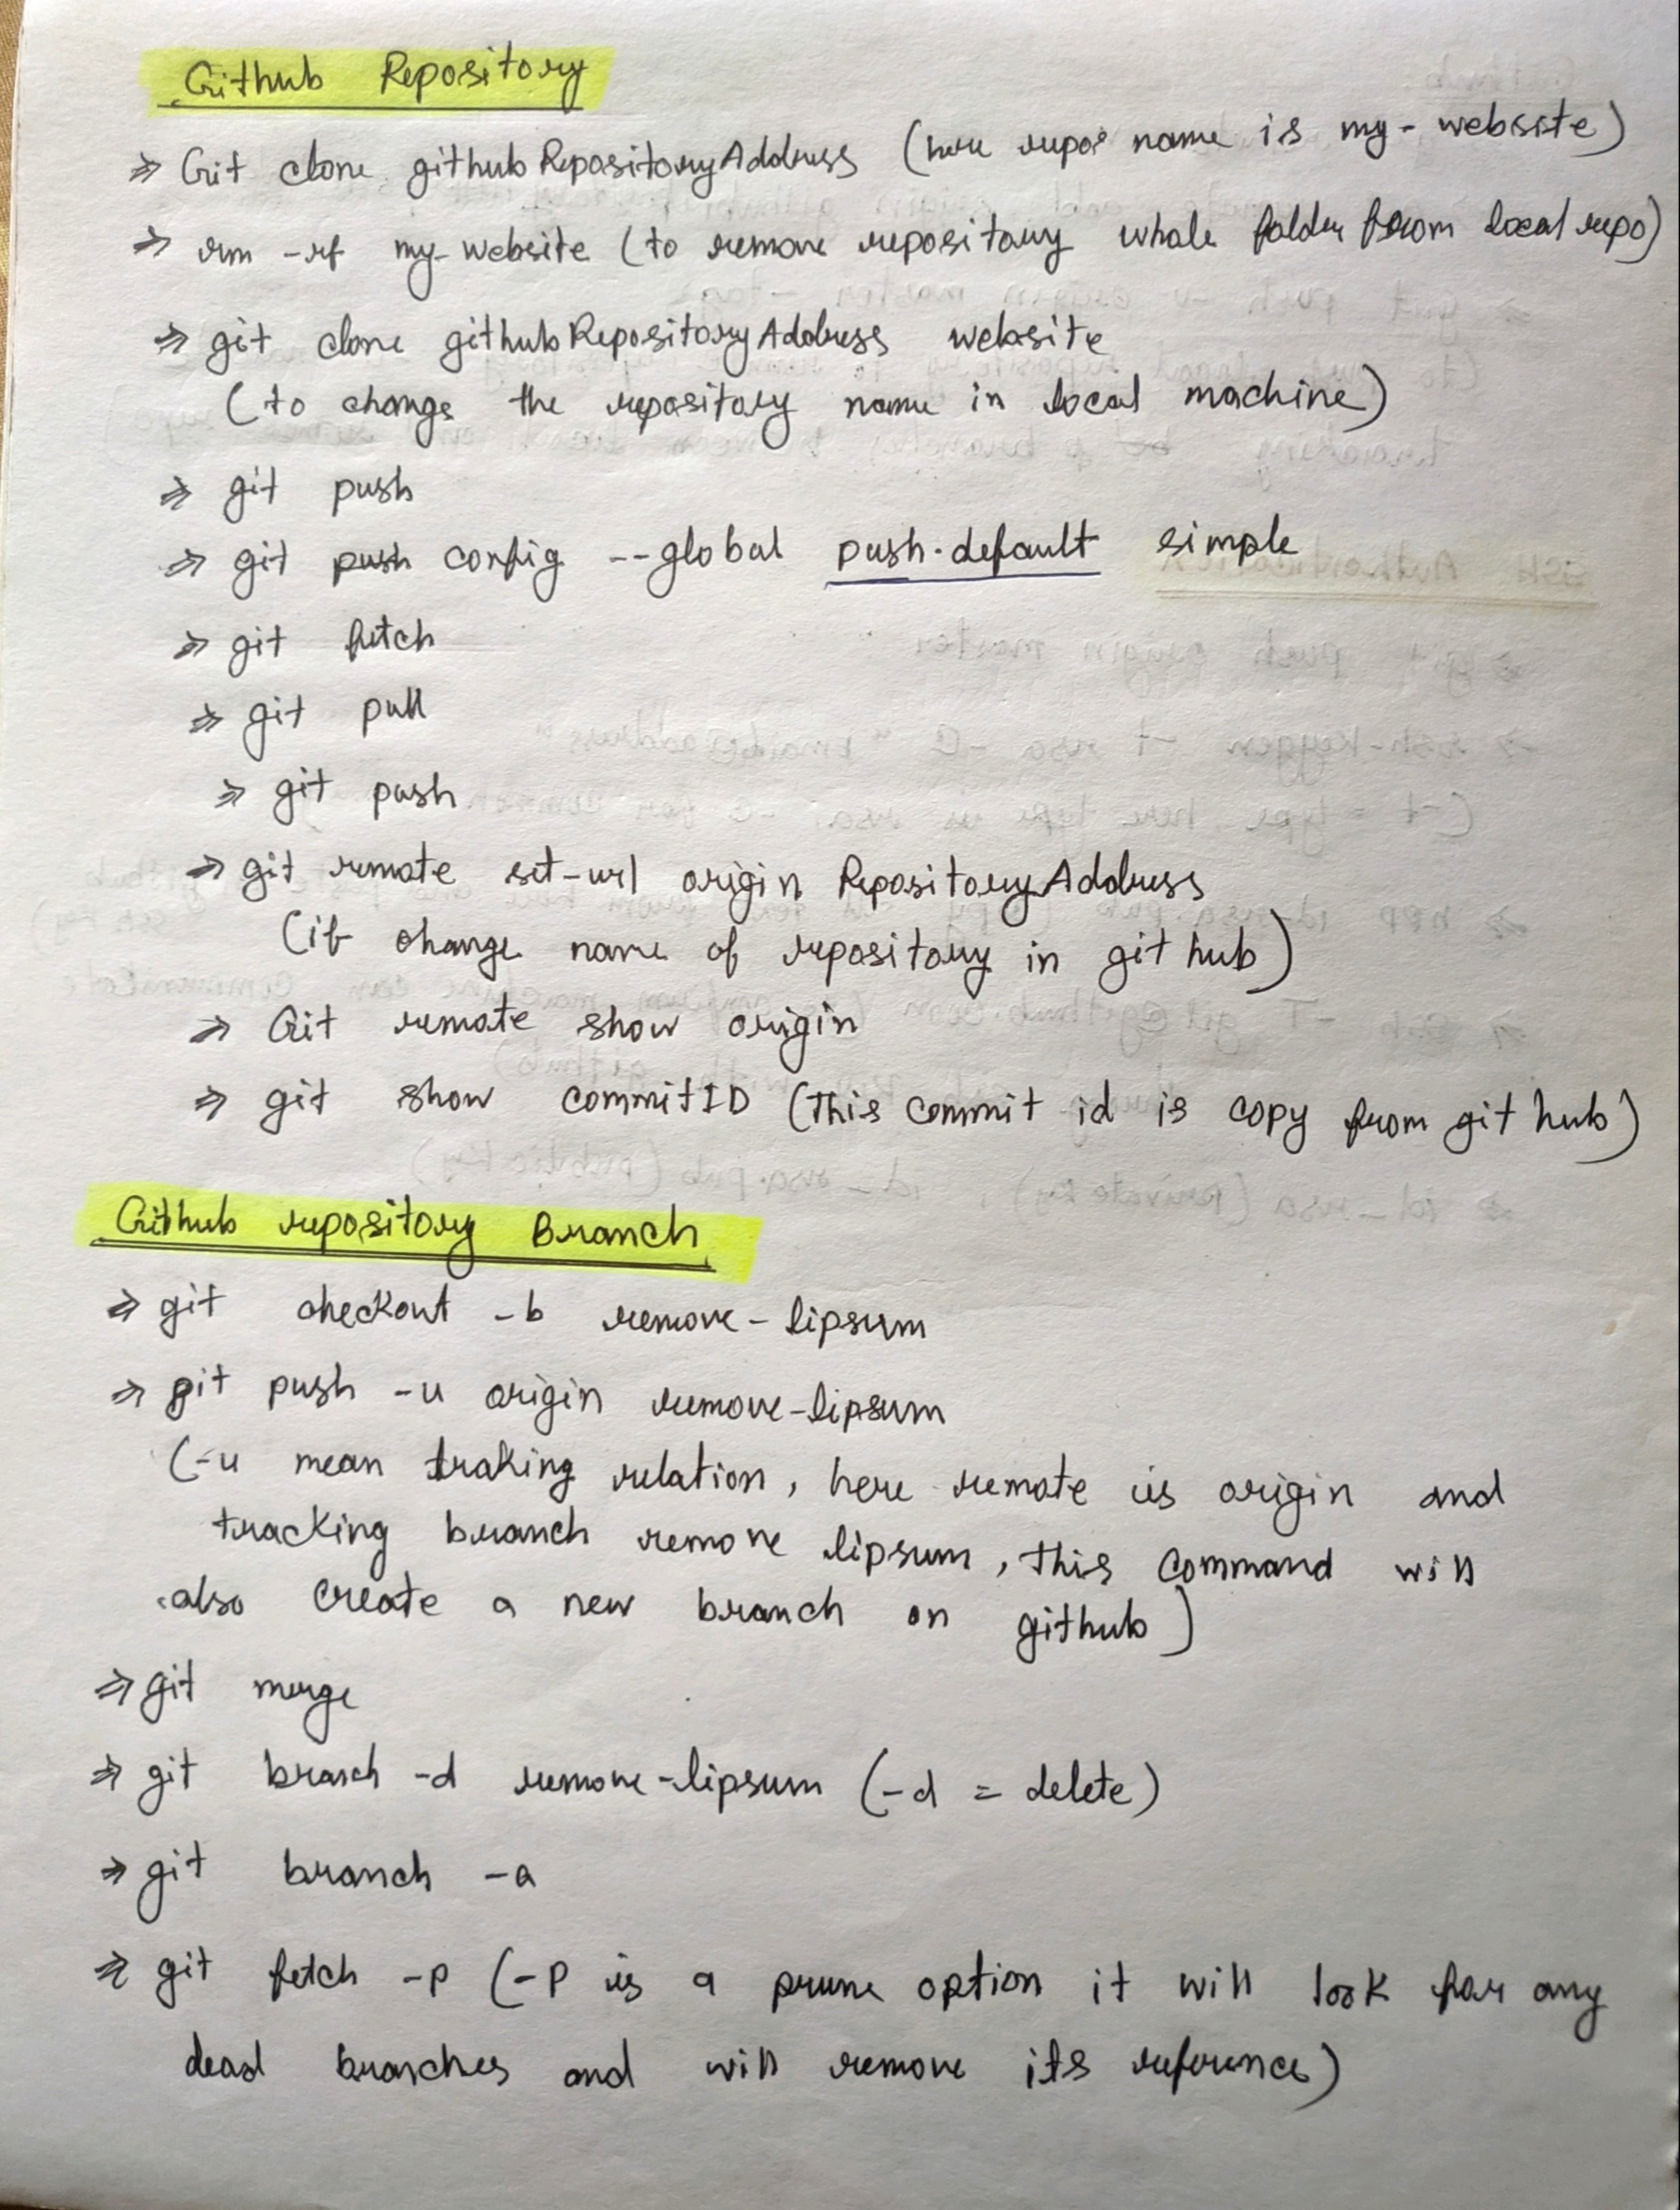 Github Repository
⇒ Git clone githubRepositoryAddress (here repos name is my-website)
⇒ rm -rf my-website (to remove repository whole folder from local repo)
⇒ git clone githubRepositoryAddress website
(to change the repository name in local machine)
⇒ git push
⇒ git push config --global push.default simple
⇒ git fetch
⇒ git pull
⇒ git push
⇒ git remote set-url origin RepositoryAddress
(if change name of repository in git hub)
⇒ Git remote show origin
⇒ git show commitID (This commit id is copy from git hub)
Github repository Branch
⇒ git checkout -b remove-lipsum
⇒ git push -u origin remove-lipsum
(-u mean traking relation, here remote is origin and
tracking branch remove lipsum, this command will
also create a new branch on github)
⇒ git merge
⇒ git branch -d remove-lipsum (-d = delete)
⇒ git branch -a
⇒ git fetch -p (-p is a prune option it will look for any
dead branches and will remove its reference)